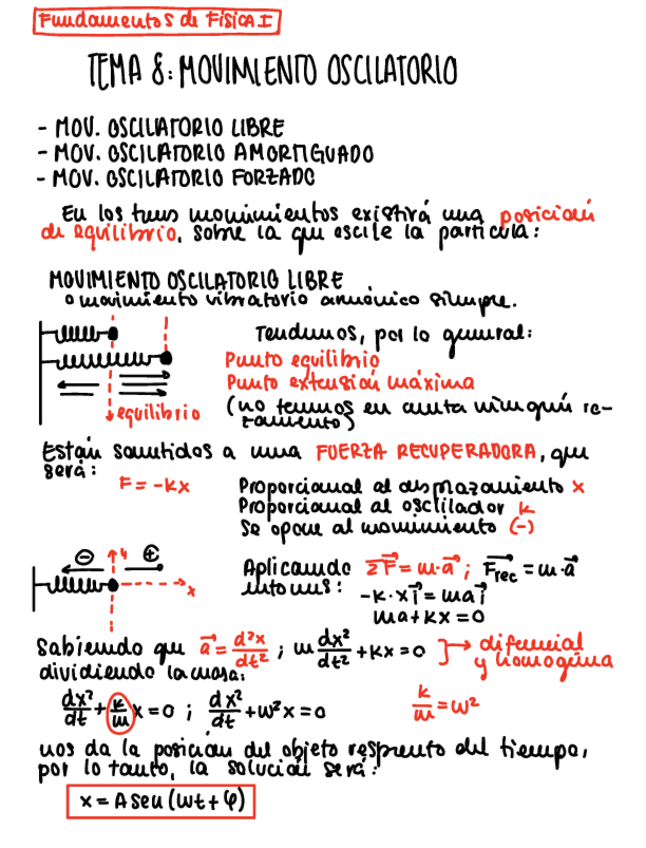 Fundamentos de Física I
TEMA 8: MOVIMIENTO OSCILATORIO
- MOV. OSCILATORIO LIBRE
- MOV. OSCILATORIO AMORTIGUADO
- MOV. OSCILATORIO FORZADO
En los tres movimientos existirá una posición
de equilibrio, sobre la que oscile la partícula:
MOVIMIENTO OSCILATORIO LIBRE
o movimiento vibratorio armónico simple.
Tendemos, por lo general:
Punto equilibrio
Punto extensión máxima
equilibrio
(no tenemos en cuenta ningún ro-
zamiento)
Están sometidos a una FUERZA RECUPERADORA, que
será:
F = -Kx
Proporcional al desplazamiento x
Proporcional al oscilador k
Se opone al movimiento (-)
⊖ y ⊕
x
Aplicando ΣF⃗ = m·a⃗ ; F⃗rec = m·a⃗
entonces:
-K·x i⃗ = ma i⃗
ma + kx = 0
Sabiendo que a⃗ = d²x/dt² ; m dx²/dt² + Kx = 0 → diferencial
y homogénea
dividiendo la masa:
dx²/dt + k/m x = 0 ; dx²/dt + ω²x = 0
k/m = ω²
nos da la posición del objeto respecto del tiempo,
por lo tanto, la solución será:
x = A sen (ωt + φ)